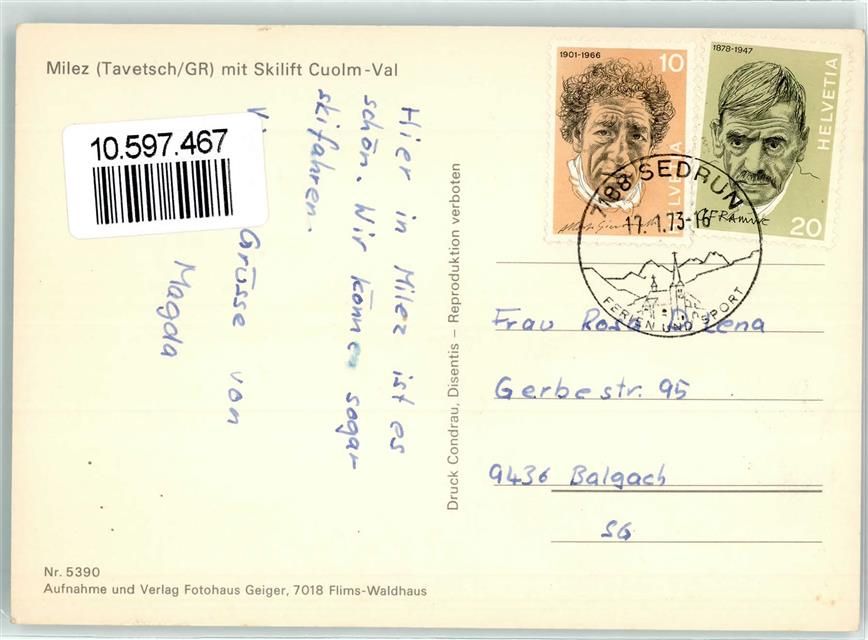 Milez (Tavetsch/GR) mit Skilift Cuolm-Val
10.597.467
Hier in Milez ist es
schön. Wir können sogar
skifahren.
Grüsse von
Magda
Druck Condrau, Disentis – Reproduktion verboten
1901-1966
10
HELVETIA
1878-1947
HELVETIA
20
7188 SEDRUN
17.1.73-16
FERIEN UND SPORT
Frau Rosa
Gerbestr. 95
9436 Balgach
SG
Nr. 5390
Aufnahme und Verlag Fotohaus Geiger, 7018 Flims-Waldhaus